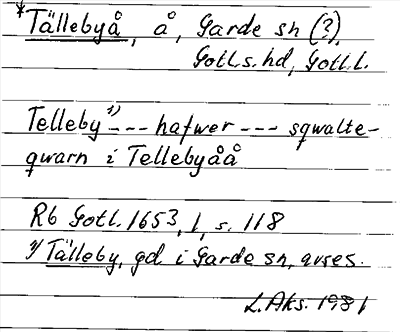 *Tällebyå, å, Garde sn (?),
Gotl.s. hd, Gotl.l.
Telleby 1) --- hafwer --- sqwalte-
qwarn i Tellebyåå
Rb Gotl. 1653, 1, s. 118
1) Tälleby, gd i Garde sn, avses.
L.Aks. 1981